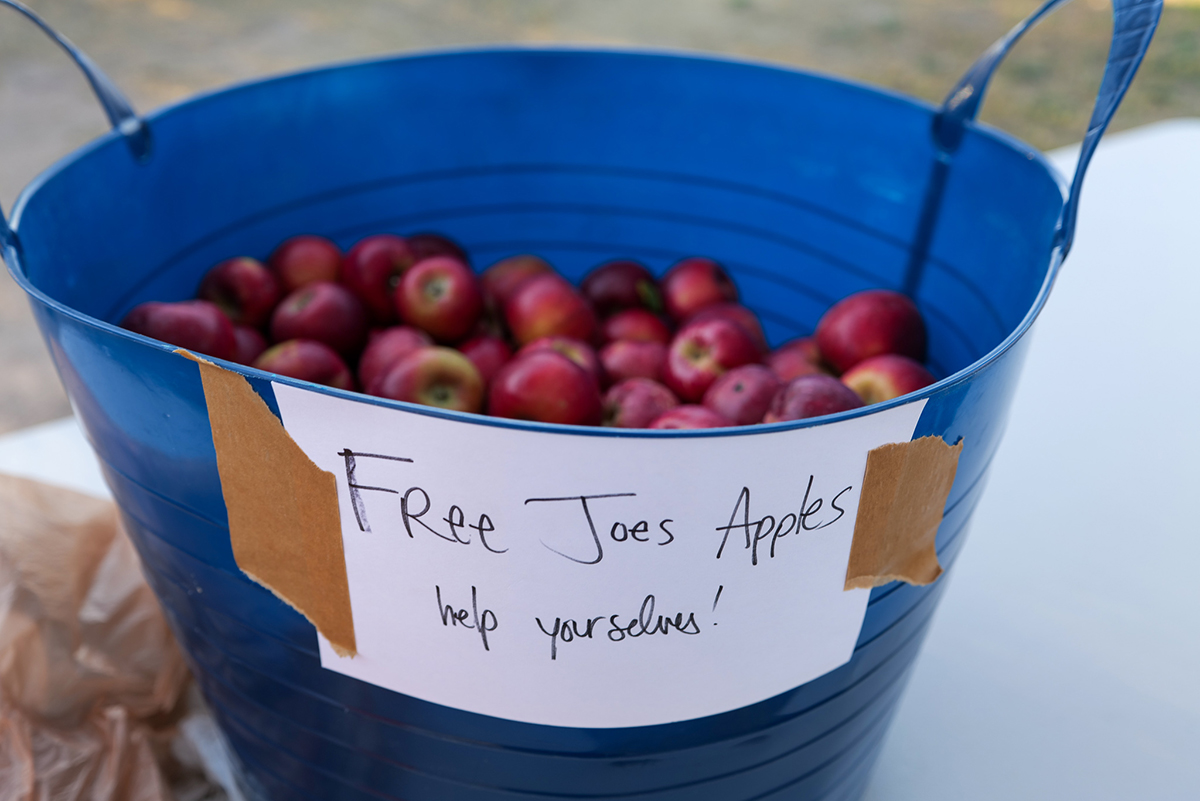 FRee Joes Apples
help yourselves!